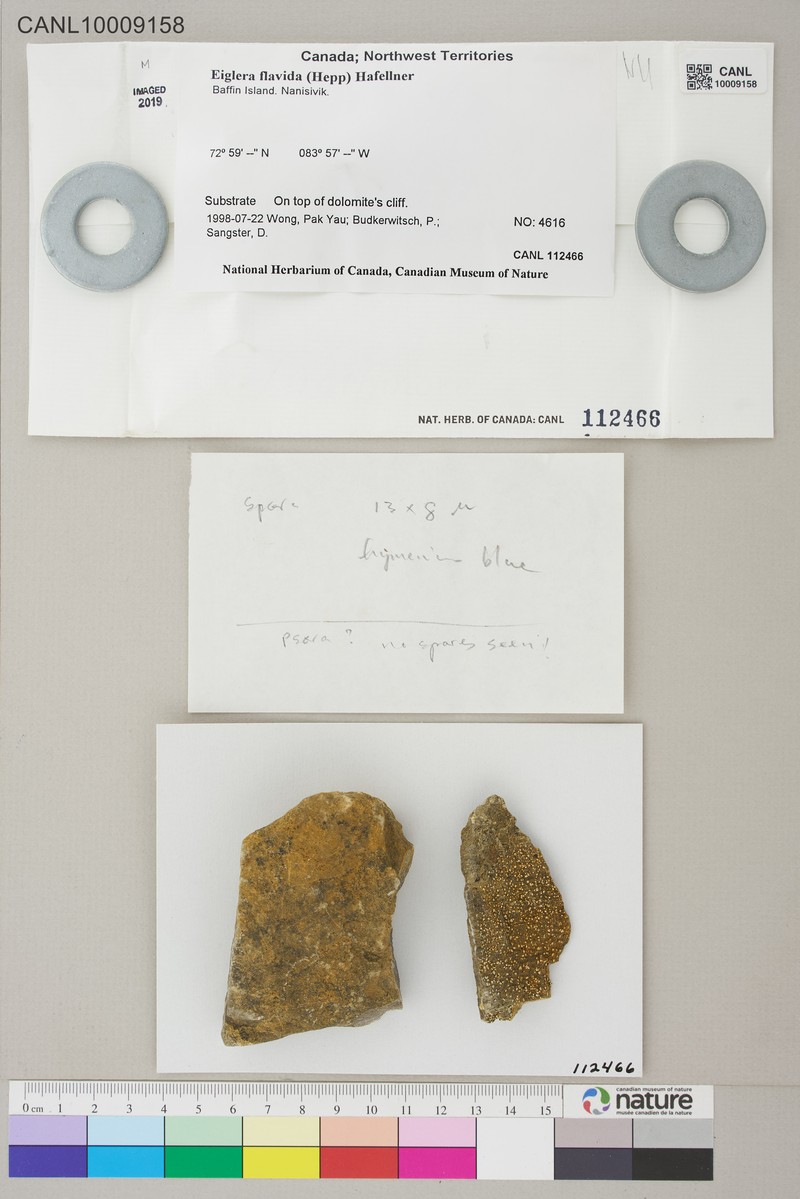 CANL10009158
M
IMAGED
2019
Canada; Northwest Territories
Eiglera flavida (Hepp) Hafellner
Baffin Island. Nanisivik.
NU
CANL
10009158
72° 59' --" N 083° 57' --" W
Substrate On top of dolomite's cliff.
1998-07-22 Wong, Pak Yau; Budkerwitsch, P.;
Sangster, D.
NO: 4616
CANL 112466
National Herbarium of Canada, Canadian Museum of Nature
NAT. HERB. OF CANADA: CANL 112466
spore 13 x 8 µ
hymenium blue
Psora? no spores seen!
112466
0 cm 1 2 3 4 5 6 7 8 9 10 11 12 13 14 15
canadian museum of nature
nature
musée canadien de la nature